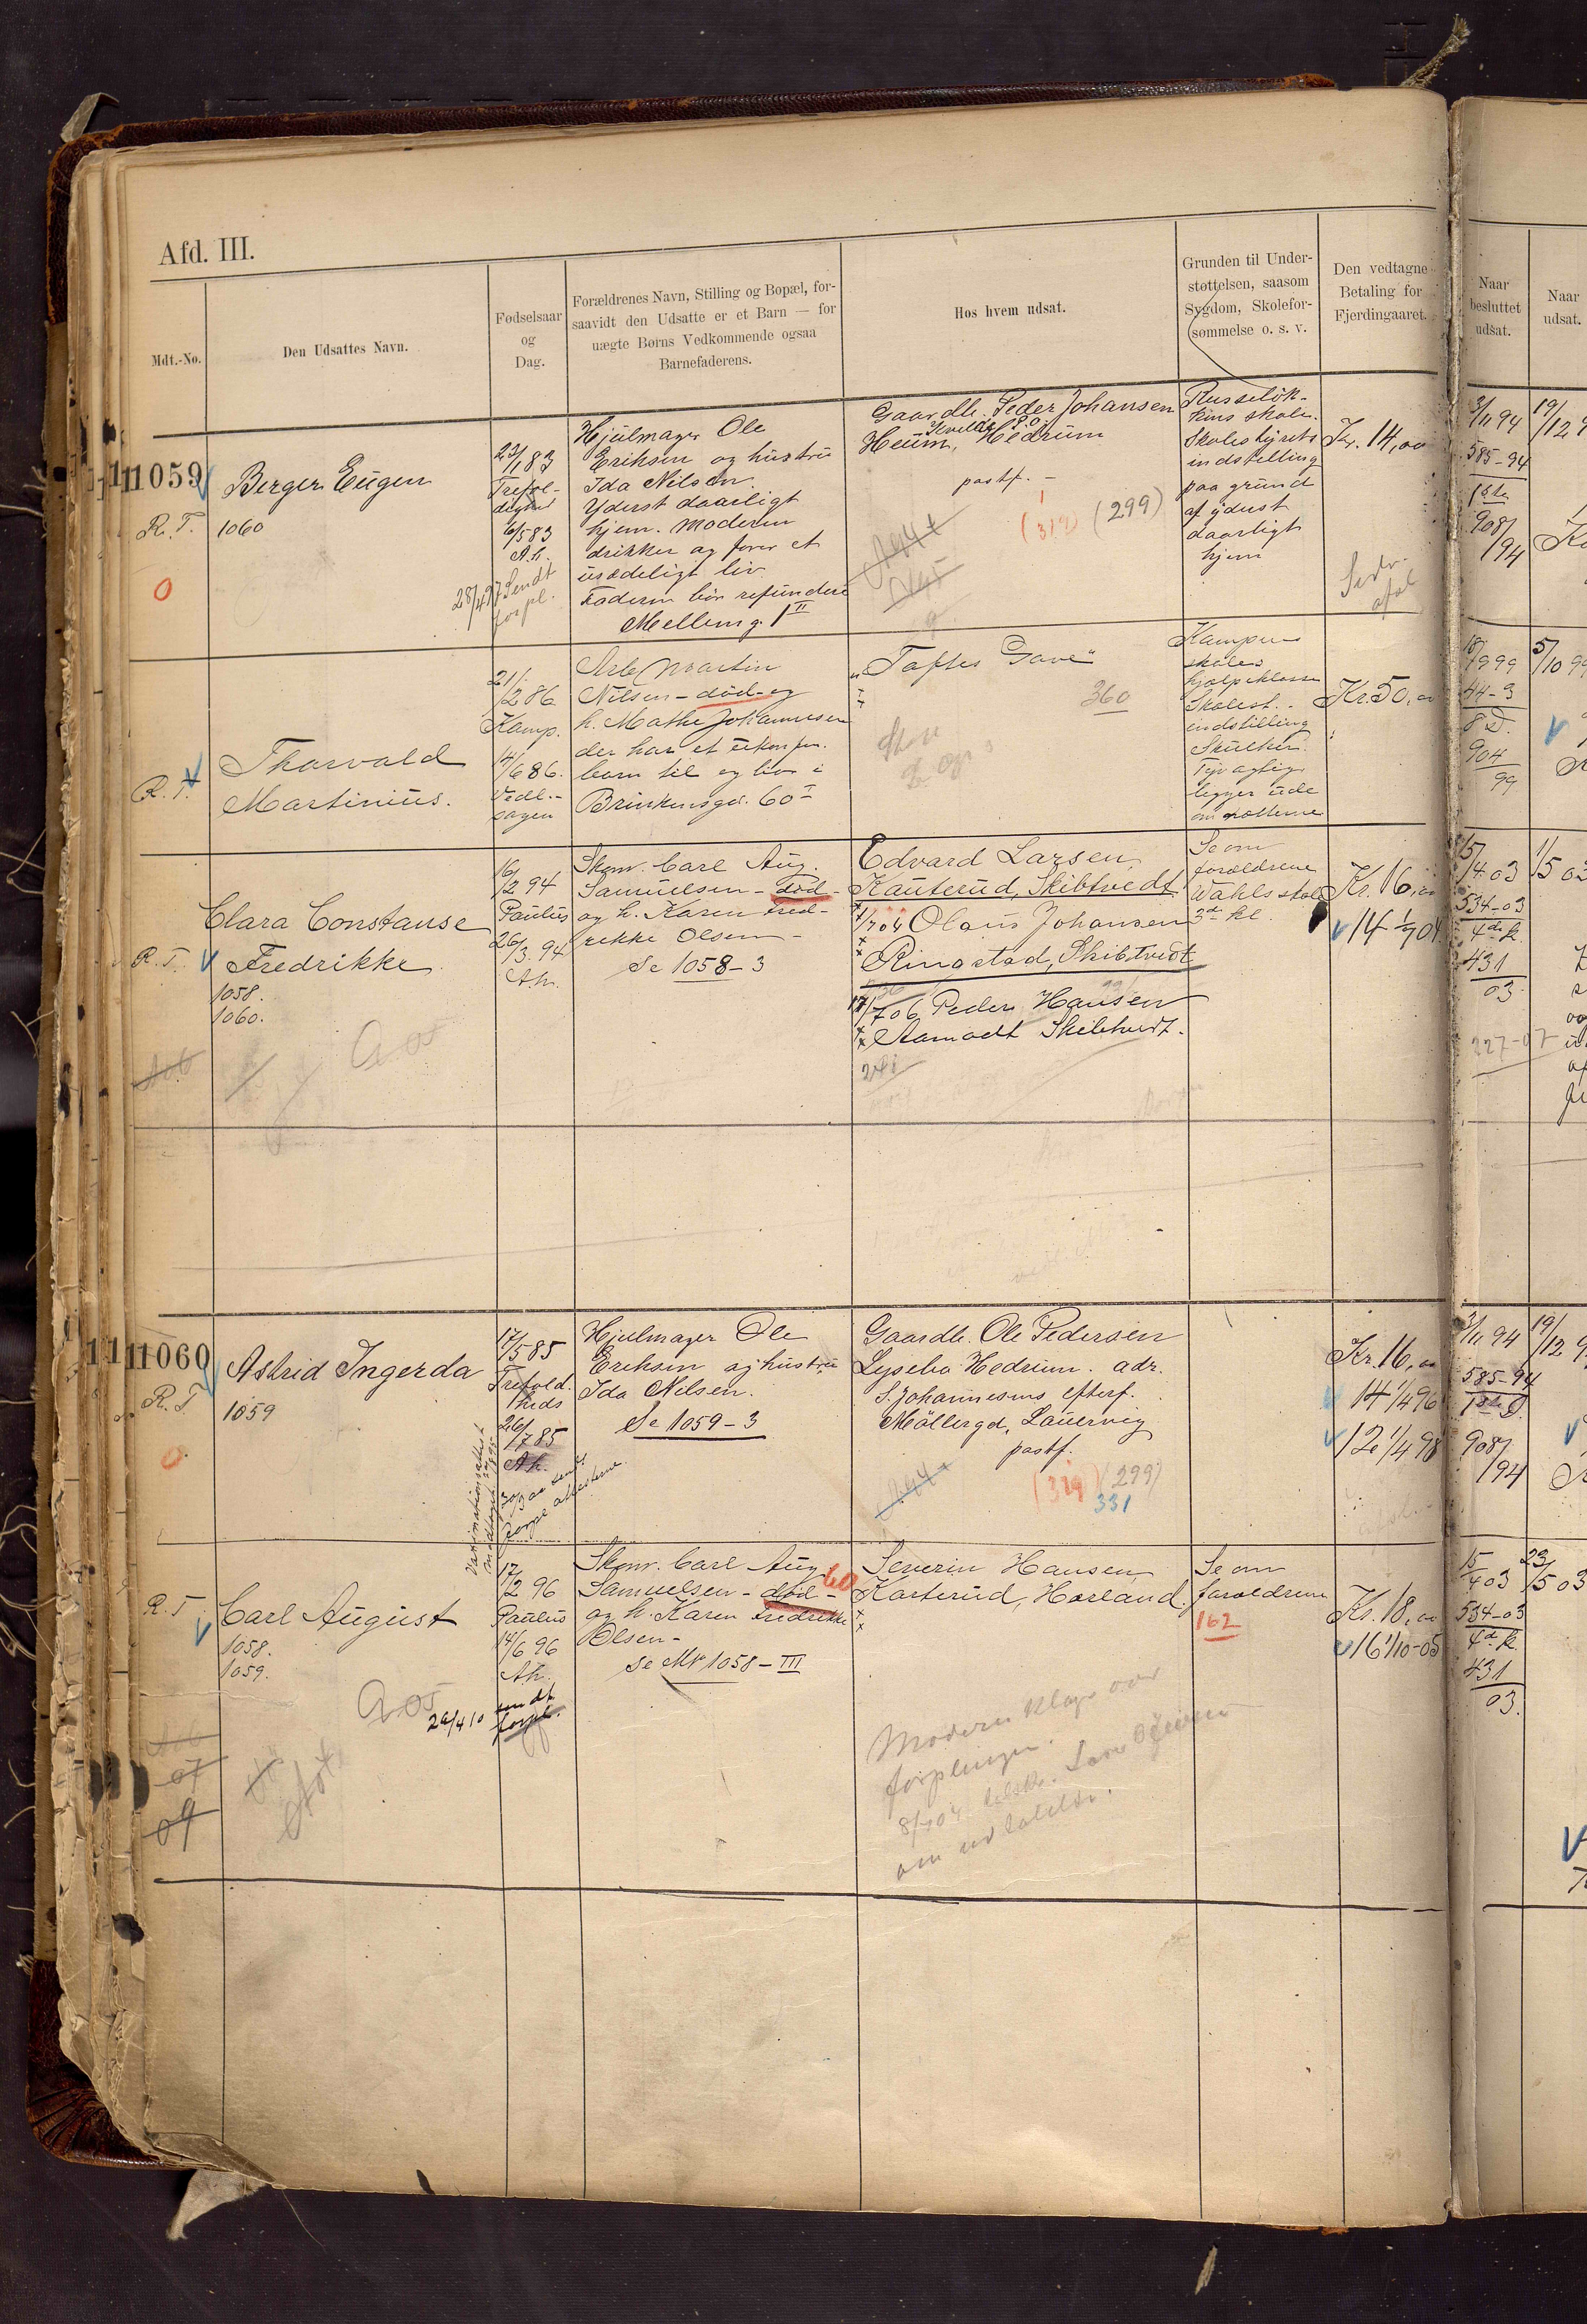 Afd. III.
Mdt.-No.
Den Udsattes Navn.
Fødselsaar
og
Dag.
Forældrenes Navn, Stilling og Bopæl, for-
saavidt den Udsatte er et Barn — for
uægte Børns Vedkommende ogsaa
Barnefaderens.
Hos hvem udsat.
Grunden til Under-
støttelsen, saasom
Sygdom, Skolefor-
sømmelse o. s. v.
Den vedtagne
Betaling for
Fjerdingaaret.
Naar
besluttet
udsat.
Naar
udsat.
1059
R. T.
0
Berger Eugen
1060
23/1 83
Trefol-
dighed
6/5 83
A.h.
28/4 97 Sendt
forpl.
Hjulmager Ole
Eriksen og hustru
Ida Nilsen.
Yderst daarligt
hjem. Moderen
drikker og fører et
usædeligt liv
Faderen bør refundere
Mellemg. 1 II
Gaardbr. Peder Johansen
Heum, Hedrum
postf. -
(319) (299)
Russeløk-
kens skole.
Skolestyrets
indstilling
paa grund
af yderst
daarligt
hjem
Kr. 14,00
3/11 94
585-94
908/94
19/12 9
R. T.
Thorvald
Martinius.
21/2 86
Kamp.
14/6 86.
Vedl.-
sagen
Arb. Martin
Nilsen - død - og
h. Mathe Johannesen
der har et uekte
barn til og bor i
Brinkensgd. 60 I
"Toftes Gave"
360
Kampens
skoles
hjælpeklasse
Skolest.
indstilling
Skulker.
Tyvagtig
ligger ude
om nætterne
Kr. 50,00
18/9 99
44-3
904
99
5/10 99
R. T.
Clara Constanse
Fredrikke
1058.
1060.
A 05
16/2 94
Paulus
26/3. 94
A.h.
Skom. Carl Aug.
Samuelsen - død -
og h. Karen Fred-
rikke Olsen
Se 1058-3
Edvard Larsen,
Kauterud, Skibtvedt
1/7 04 Olaus Johansen
Ringstad, Skibtvedt
17/7 06 Peder Hansen
Aamodt Skibtvedt.
Se om
forældrene
Wahls skole
3die kl.
Kr. 16,00
14 1/7 04
15/4 03
534-03
431
03
227-07
1/5 03
1060
R. T
0
Astrid Ingerda
1059
17/5 85
Trefold.
heds
26/7 85
A.h.
Hjulmager Ole
Eriksen og hustru
Ida Nilsen.
Se 1059-3
Gaardbr. Ole Pedersen
Lysebo Hedrum. adr.
S. Johannesens efterf.
Möllergd, Laurvig
postf.
(319) (299)
331
Kr. 16,00
14 1/4 96
12 1/4 98
3/11 94
585-94
908/94
19/12 9
R. T.
Carl August
1058.
1059.
A 05
07
09
17/2 96
Paulus
14/6 96
A.h.
26/4 10 sendt
forpl.
Skom. Carl Aug.
Samuelsen - død -
og h. Karen Fredrikke
Olsen -
Se Nr 1058 - III
Severin Hansen
Karterud, Hærland.
Moderen klager over
forpleiningen.
om udtalelse.
Se om
forældrene
162
Kr. 18,00
16 1/10-05
15/4 03
534-03
431
03.
23/5 03